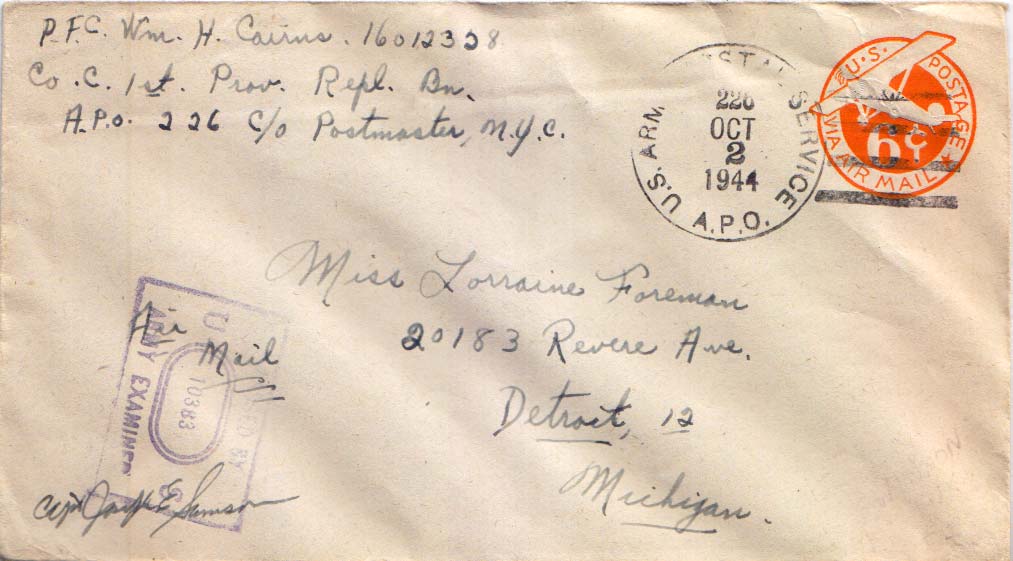 P.F.C. Wm. H. Cairns. 16012328
Co. C. 1st. Prov. Repl. Bn.
A.P.O. 226 C/o Postmaster, N.Y.C.
U.S. ARM STAL SERVICE
226
OCT
2
1944
A.P.O.
U.S. POSTAGE
6¢
VIA AIR MAIL
Miss Lorraine Foreman
20183 Revere Ave.
Detroit, 12
Michigan.
Air
Mail
BY
10383
ARMY EXAMINER
Capt Joseph E Samson